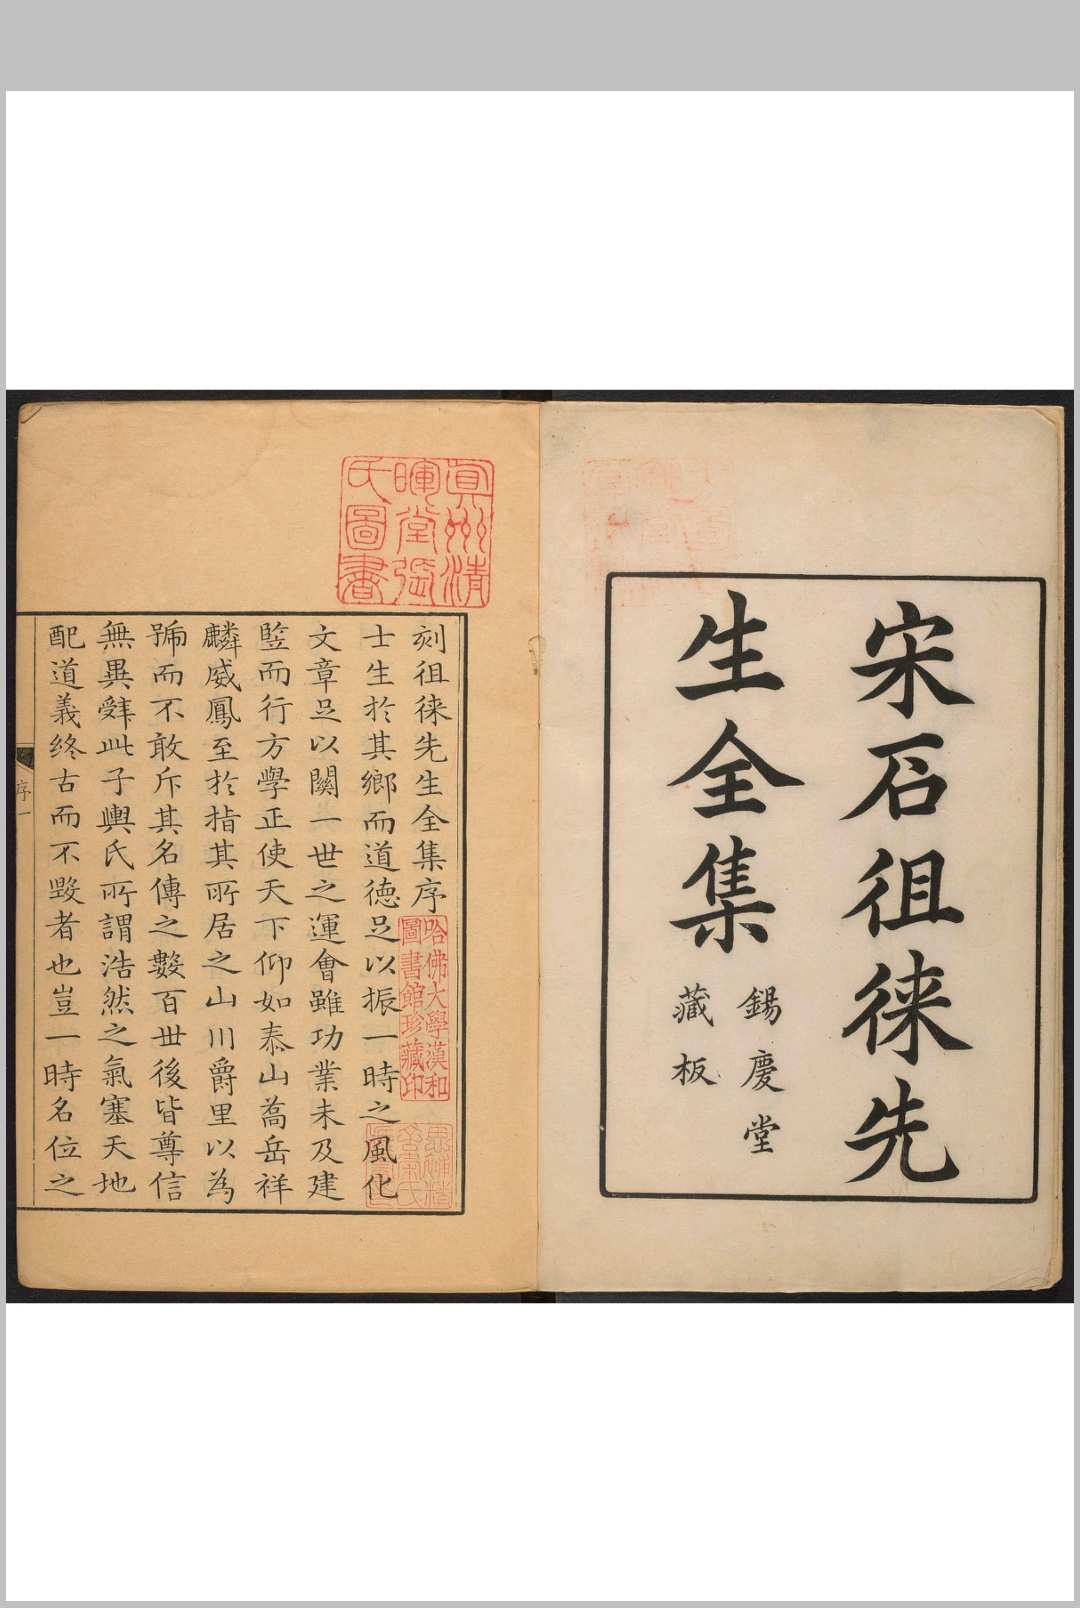 宋石徂徠先
生全集
錫慶堂
藏板
眞州清
暉堂張
氏圖書
刻徂徠先生全集序
士生於其鄉而道德足以振一時之風化
文章足以關一世之運會雖功業未及建
豎而行方學正使天下仰如泰山喬岳祥
麟威鳳至於指其所居之山川爵里以為
號而不敢斥其名傳之數百世後皆尊信
無異辭此子輿氏所謂浩然之氣塞天地
配道義終古而不毀者也豈一時名位之
哈佛大學漢和
圖書館珍藏印
序一